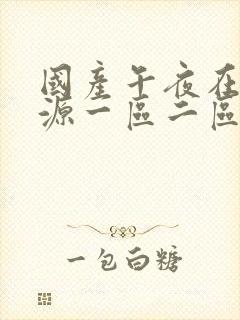 國產午夜在
源一區二區
一包白糖